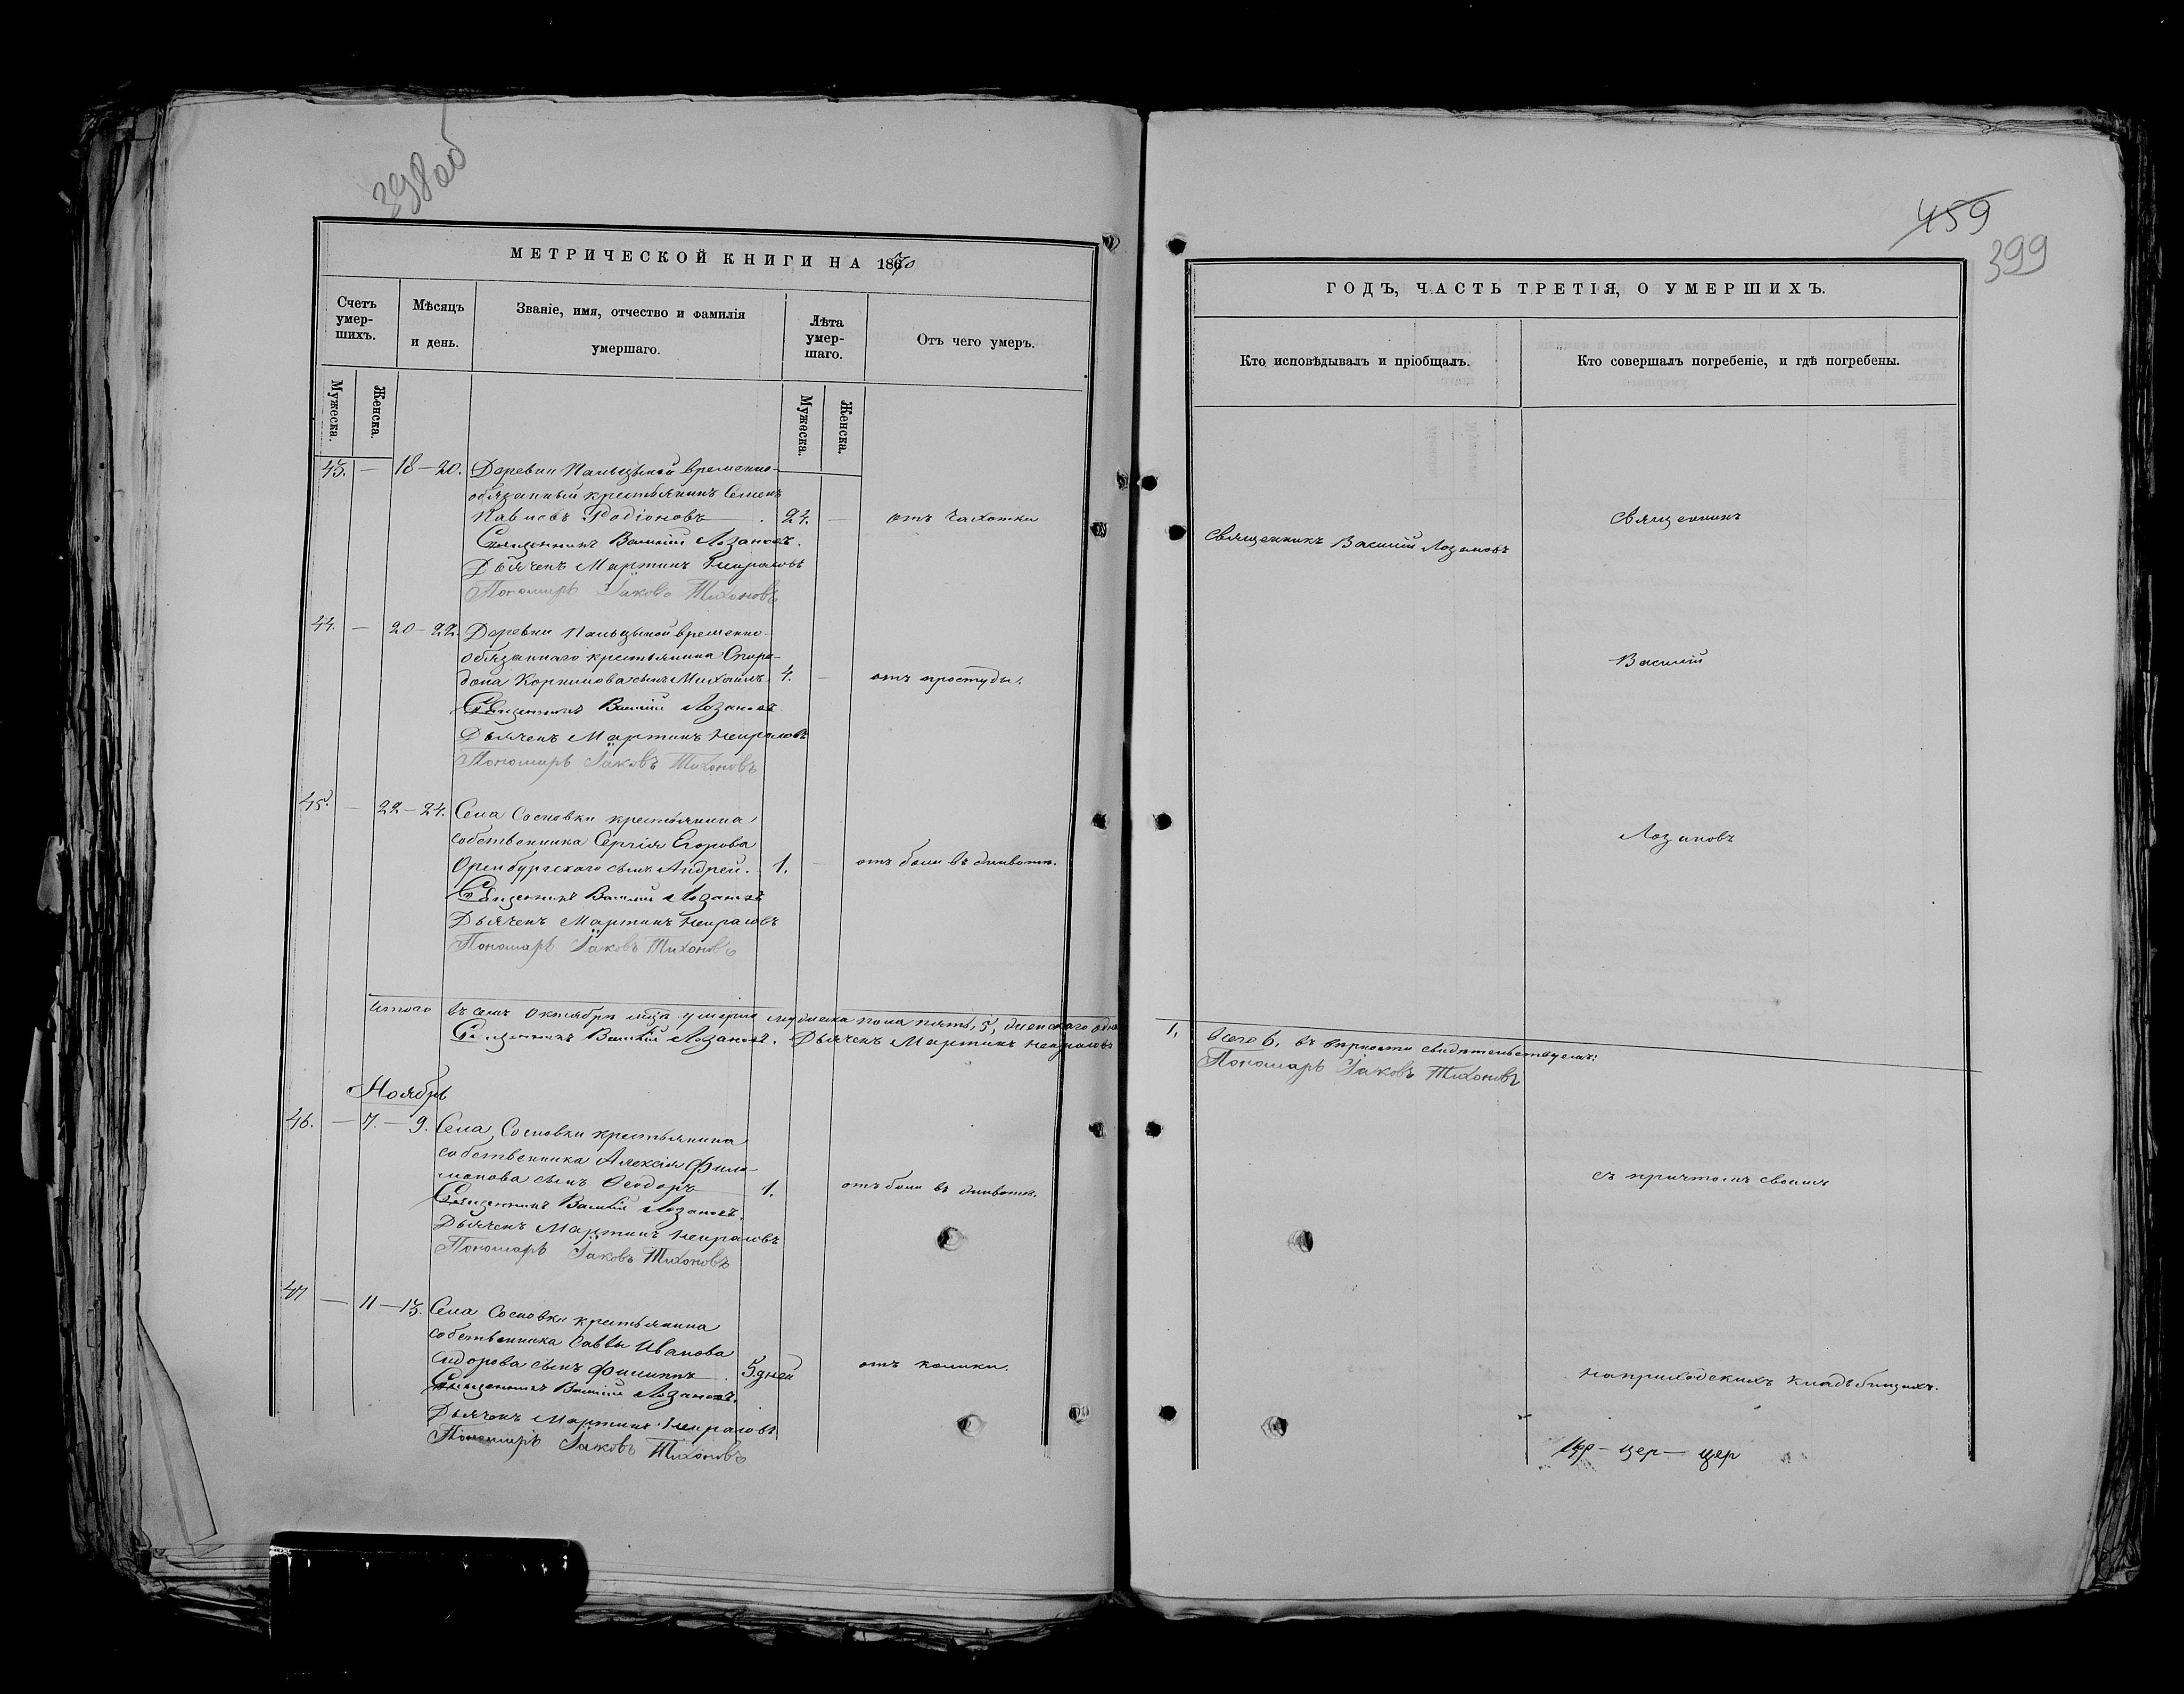 398об
МЕТРИЧЕСКОЙ КНИГИ НА 1870
Счетъ умер-шихъ.
Мѣсяцъ и день.
Званіе, имя, отчество и фамилія умершаго.
Лѣта умер-шаго.
Отъ чего умеръ.
Мужеска.
Женска.
Мужеска.
Женска.
43. — 18—20. Деревни временно-
обязанный крестьянинъ Семенъ
Родіоновъ 24. — отъ чахотки
Священникъ Василій Лозановъ.
Дьячекъ Мартинъ Некрасовъ
Пономарь Іаковъ Тихоновъ
44. — 20—22. Деревни временно-
обязаннаго крестьянина Спири-
дона Корнилова сынъ Михаилъ 4. — отъ простуды.
Священникъ Василій Лозановъ
Дьячекъ Мартинъ Некрасовъ
Пономарь Іаковъ Тихоновъ
45. — 22—24. Села Сосновки крестьянина
собственника Сергія Егорова
Оренбургскаго сынъ Андрей. 1. — отъ боли въ животѣ.
Священникъ Василій Лозановъ
Дьячекъ Мартинъ Некрасовъ
Пономарь Іаковъ Тихоновъ
Итого въ семъ Октябрѣ мѣц. умерло мужеска пола пять, 5, женскаго одна
Священникъ Василій Лозановъ. Дьячекъ Мартинъ Некрасовъ
Ноябрь
46. — 7. — 9. Села Сосновки крестьянина
собственника Алексія Фили-
монова сынъ Ѳеодоръ 1. отъ боли въ животѣ.
Священникъ Василій Лозановъ.
Дьячекъ Мартинъ Некрасовъ
Пономарь Іаковъ Тихоновъ
47 — 11—13. Села Сосновки крестьянина
собственника Саввы Иванова
Сидорова сынъ Филиппъ. 5. дней отъ колики.
Священникъ Василій Лозановъ.
Дьячекъ Мартинъ Некрасовъ
Пономарь Іаковъ Тихоновъ
459
399
ГОДЪ, ЧАСТЬ ТРЕТІЯ, О УМЕРШИХЪ.
Кто исповѣдывалъ и пріобщалъ.
Кто совершалъ погребеніе, и гдѣ погребены.
Священникъ
Священникъ Василій Лозановъ
Василій
Лозановъ
1, всего 6. въ вѣрности свидѣтельствуемъ:
Пономарь Іаковъ Тихоновъ
съ причтомъ своимъ
на приходскихъ кладбищахъ.